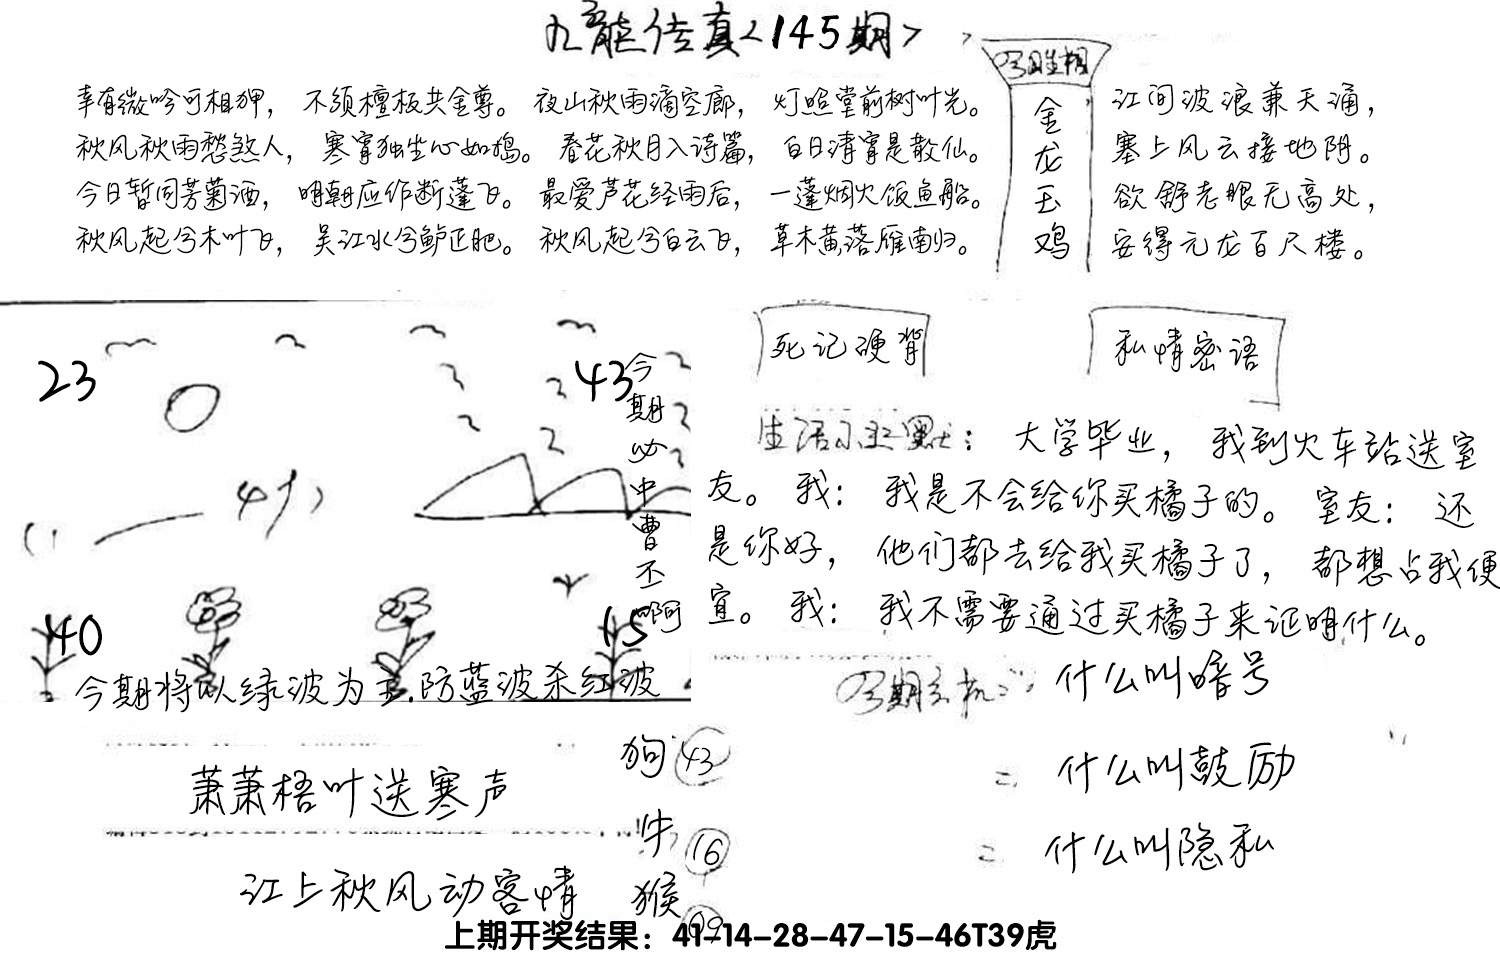 九龙传真<145期>
幸有微吟可相狎， 不须檀板共金尊。 夜山秋雨滴空廊， 灯照堂前树叶光。
秋风秋雨愁煞人， 寒宵独坐心如捣。 春花秋月入诗篇， 白日清宵是散仙。
今日暂同芳菊酒， 明朝应作断蓬飞。 最爱芦花经雨后， 一蓬烟火饭鱼船。
秋风起兮木叶飞， 吴江水兮鲈正肥。 秋风起兮白云飞， 草木黄落雁南归。
金龙玉鸡
江间波浪兼天涌，
塞上风云接地阴。
欲舒老眼无高处，
安得元龙百尺楼。
23
43
40
15
今期必中曹不啊
今期将以绿波为主.防蓝波杀红波
死记硬背
私情密语
生活小幽默： 大学毕业， 我到火车站送室
友。 我： 我是不会给你买橘子的。 室友： 还
是你好， 他们都去给我买橘子了， 都想占我便
宜。 我： 我不需要通过买橘子来证明什么。
什么叫暗号
二 什么叫鼓励
二 什么叫隐私
萧萧梧叶送寒声
江上秋风动客情
狗 43
牛 16
猴 09
上期开奖结果：41-14-28-47-15-46T39虎